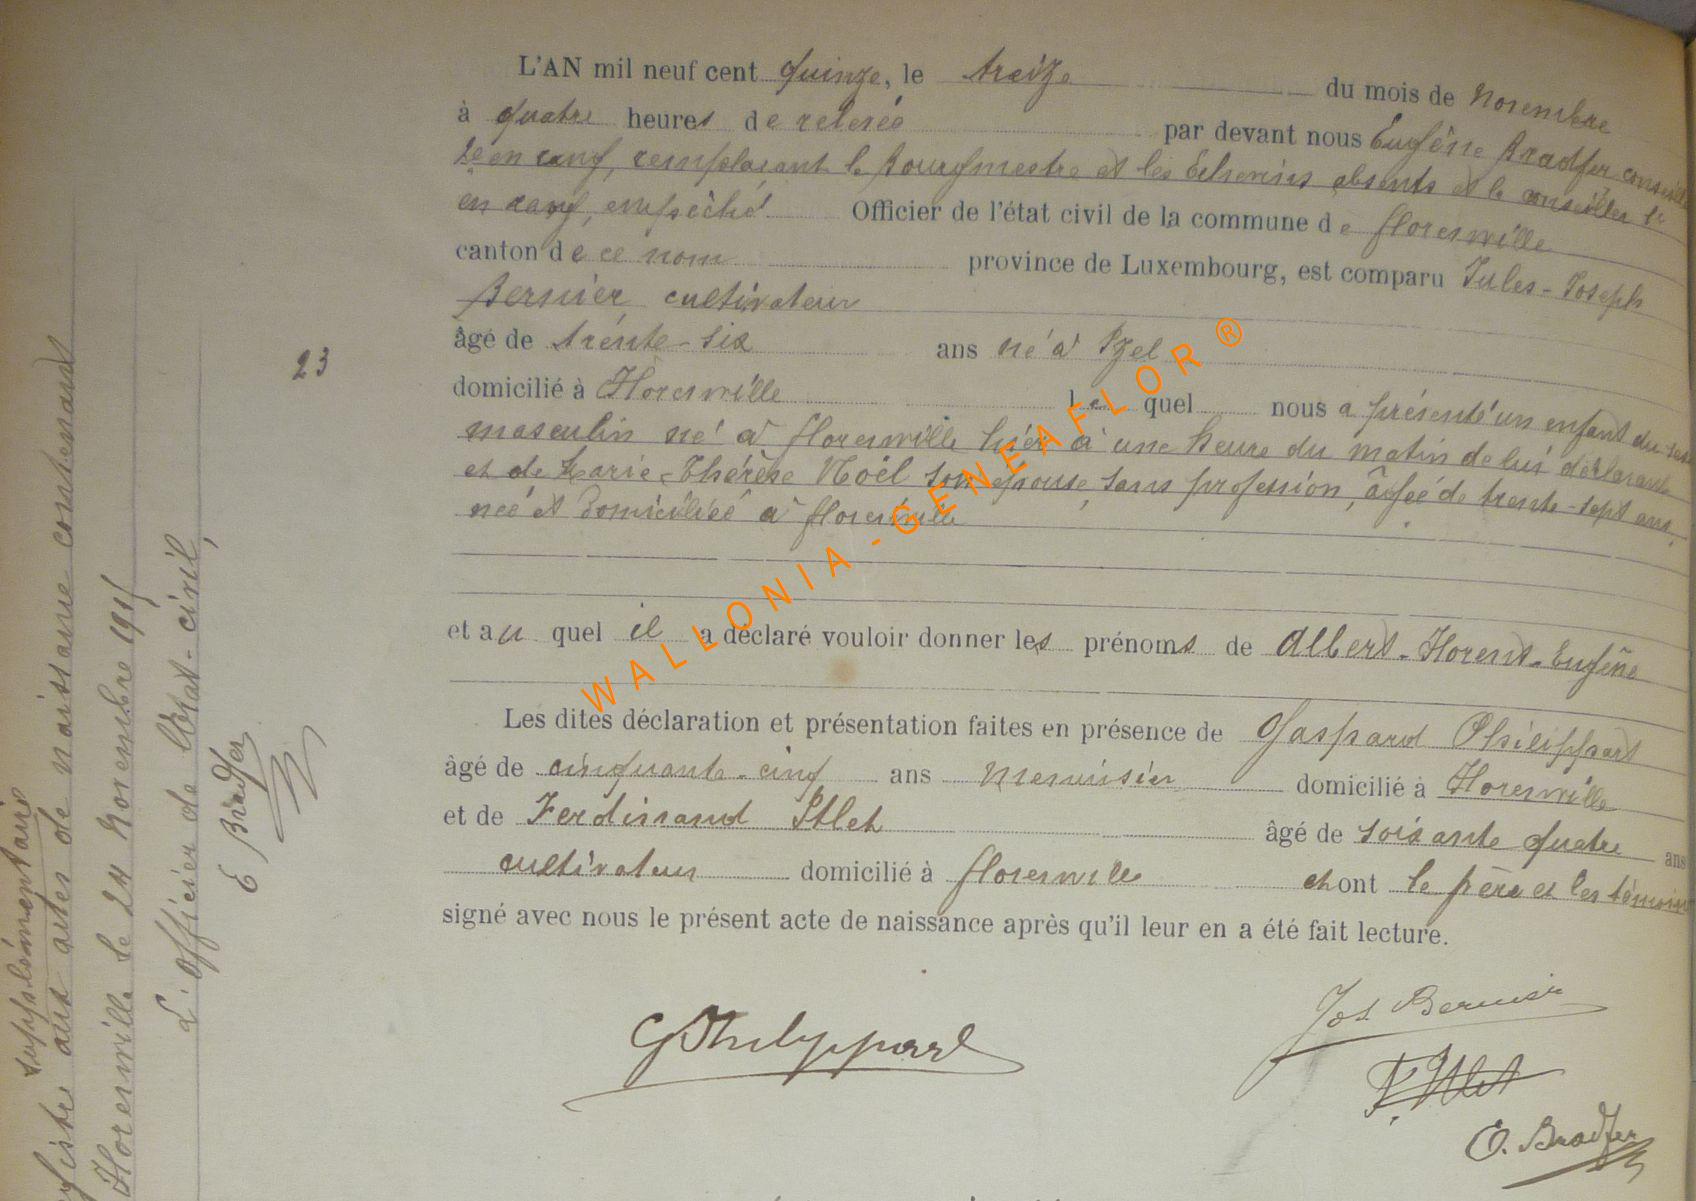 L'AN mil neuf cent quinze, le treize du mois de Novembre
à quatre heures de relevée par devant nous Eugène Bradfer conseiller
2e en rang, remplaçant le Bourgmestre et les Echevins absents et le conseiller 1r
en rang, empêché Officier de l'état civil de la commune de Florenville
canton de ce nom province de Luxembourg, est comparu Jules-Joseph
Bernier cultivateur
âgé de trente-six ans né à Izel
23
domicilié à Florenville lequel nous a présenté un enfant du sexe
masculin né à Florenville hier à une heure du matin de lui déclarant
et de Marie-Thérèse Noël son épouse, sans profession, âgée de trente-sept ans,
née et domiciliée à Florenville
et au quel il a déclaré vouloir donner les prénoms de Albert-Florent-Eugène
Les dites déclaration et présentation faites en présence de Gaspard Philippart
âgé de cinquante-cinq ans menuisier domicilié à Florenville
et de Ferdinand Itlet âgé de soixante quatre ans
cultivateur domicilié à Florenville et ont le père et les témoins
signé avec nous le présent acte de naissance après qu'il leur en a été fait lecture.
G Philippart
Jos. Bernier
F. Itlet
E. Bradfer
supplémentaire
aux actes de naissance contenant
Florenville le 24 Novembre 1915
L'officier de l'Etat-civil,
E Bradfer
WALLONIA-GENEAFLOR ®